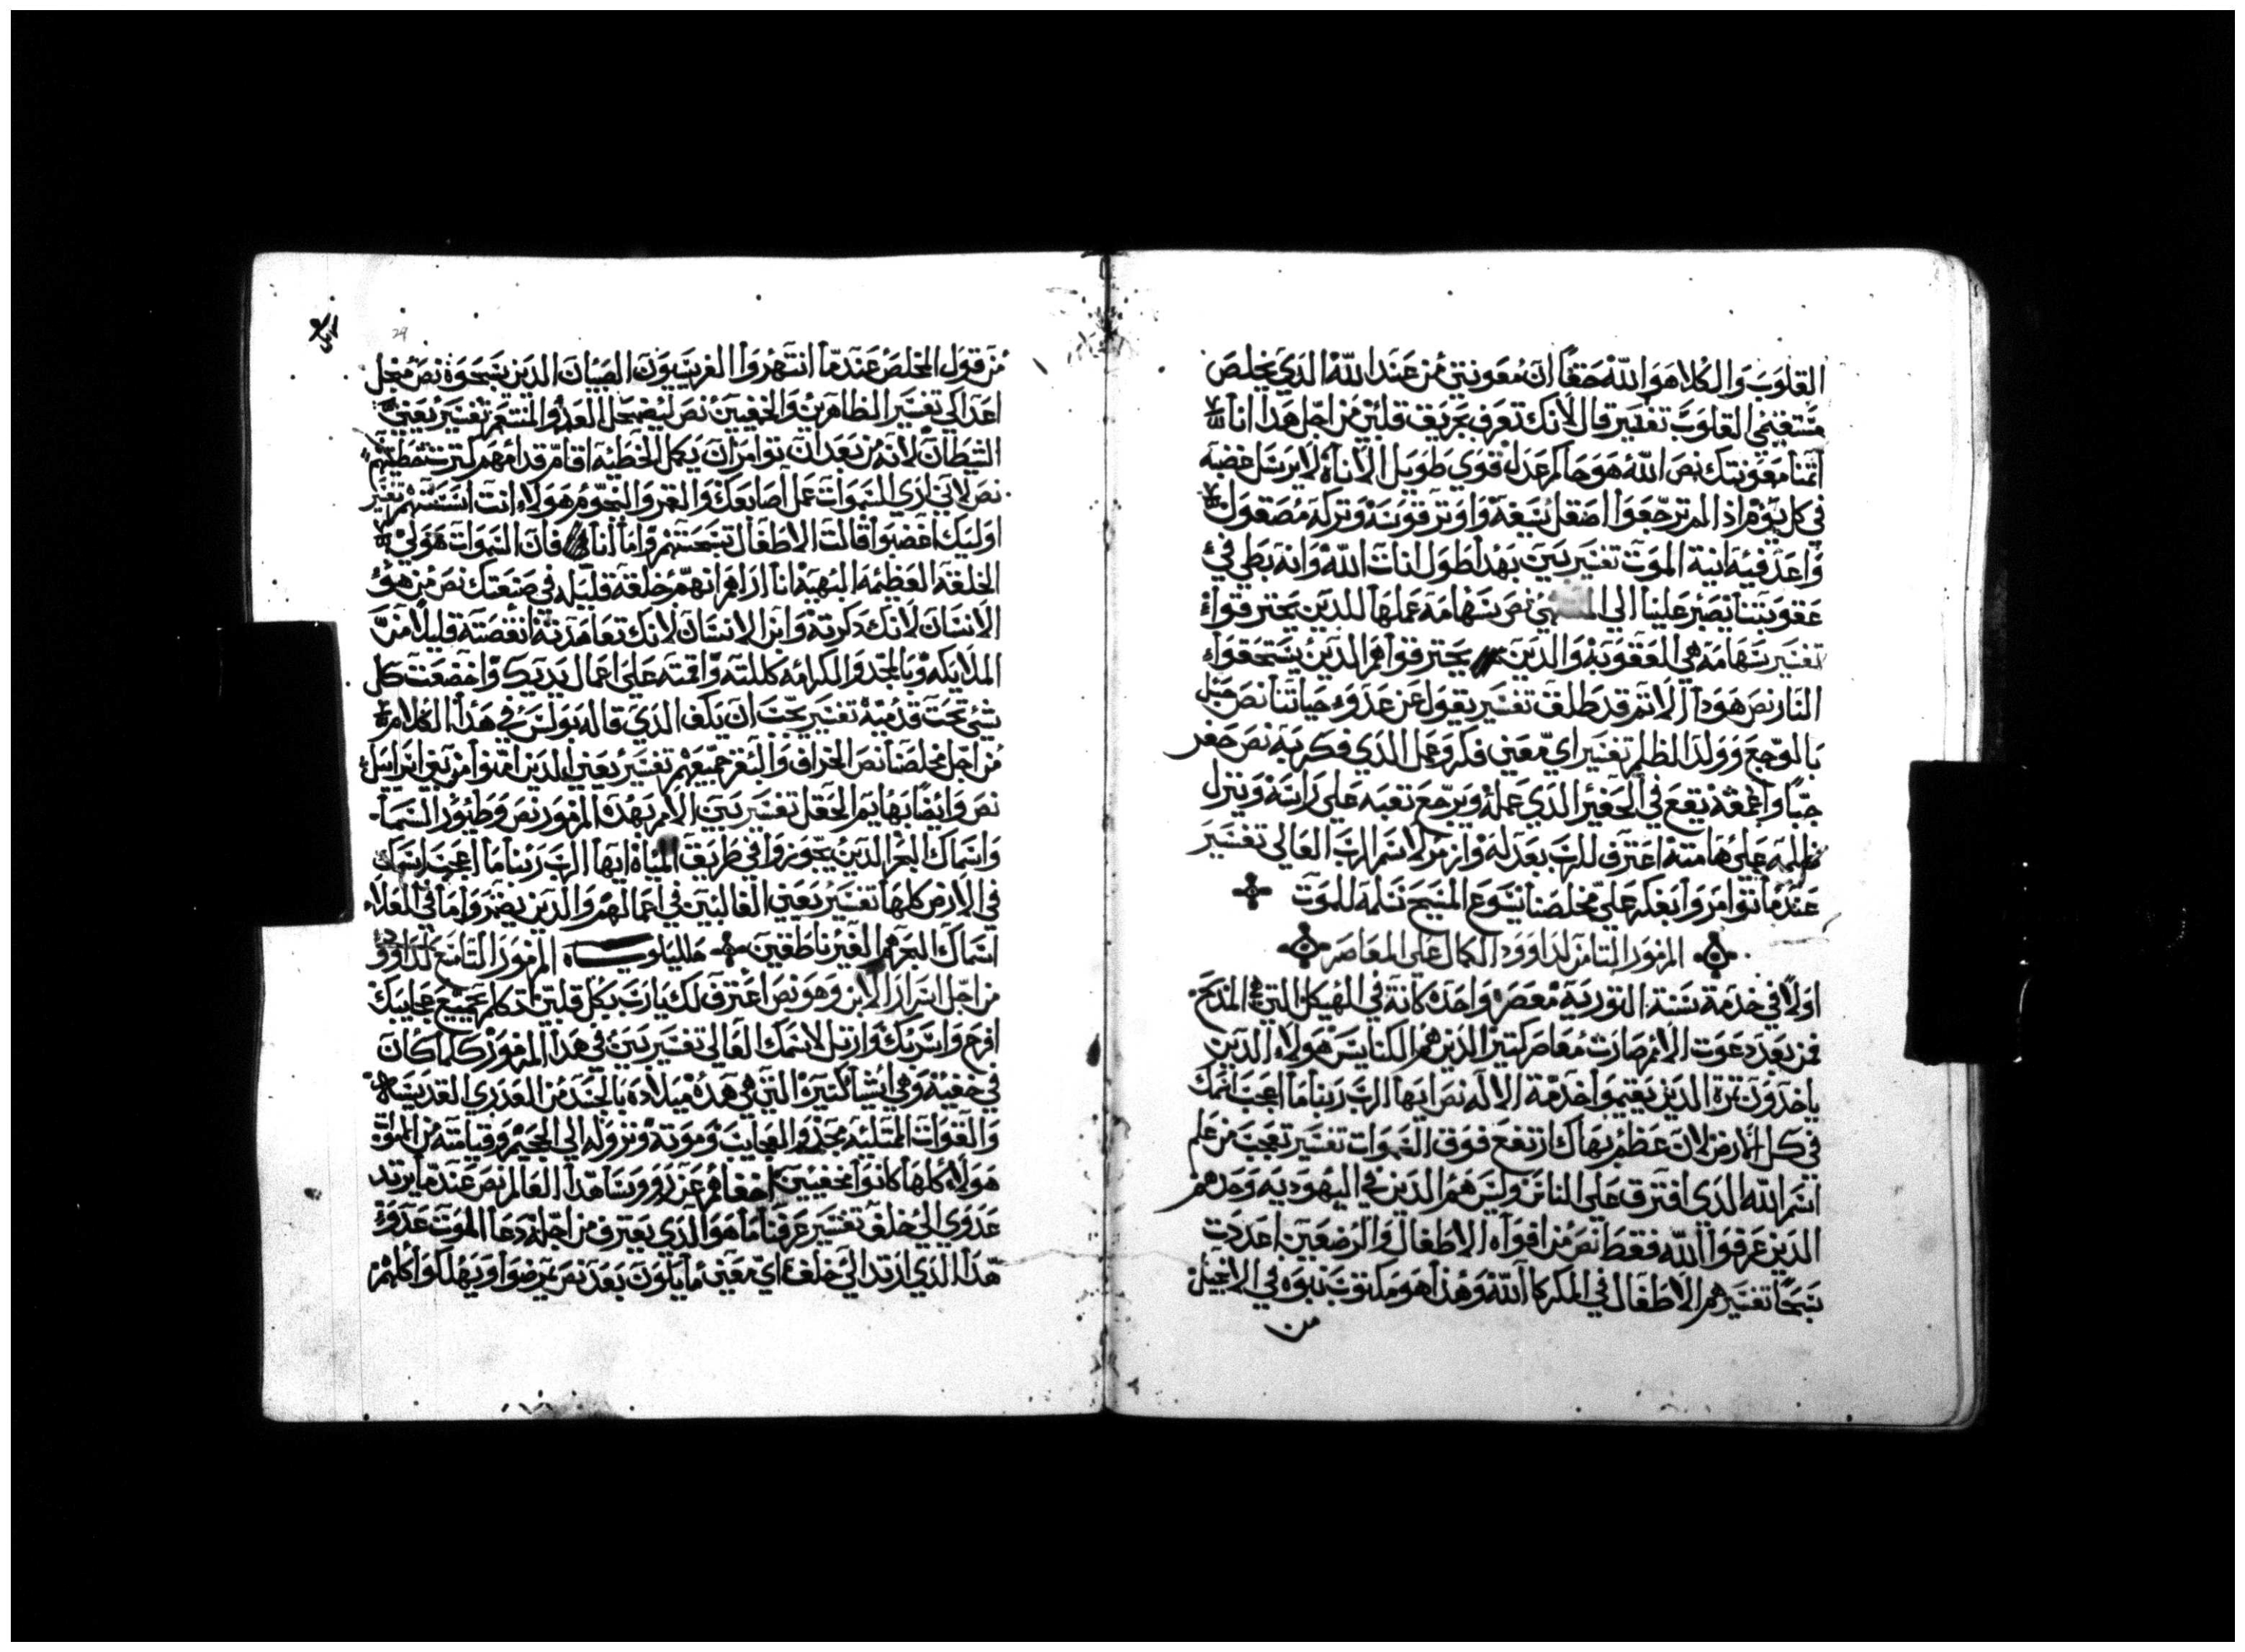 القلوب والكلا هو الله حقاً ان معونتي من عند الله الذي يخلص
مستقيمي القلوب تفسير قال لانك تعرف بحريق قلبي من اجل هدا انا
اتمنا معونتك نص الله هو حاكم عدل قوي طويل الاناة لا يرسل غضبه
في كل يوم اذا لم ترجعوا اصقل سيفه واوتر قوسه وتركه مصقول
واعد فيه انية الموت تفسير تبين بهدا طول انات الله وانه بطي في
عقوبتنا نصبر علينا الي نص سهامه عملها للدين يحترقوا
تفسير سهامه هي العقوبه والدين يحترقوا هم الدين يستحقوا
النار نص هودا الاتم قد طلق تفسير يقول عن عدو حياتنا نص حبل
بالوجع وولد الظلم تفسير اي معني فكر وعمل الدي فكر به نص حفر
جباً واعمقه يقع في الحفير الدي عمله ويرجع تعبه علي راسه وينزل
ظلمه علي هامته اعترف للرب بعدله وارتل لاسم الرب العالي تفسير
عندما توامروا بفكر علي مخلصنا يسوع المسيح تسلمه للموت
المزمور التامن لداوود الكمال علي المعاصر
اولاً في خدمة سنة التوريه معصره واحده كانة في الهيكل التي هي المدبح
فمن بعد دعوت الامم صارت معاصر كتير الدين هم الكنايس هولاء الدين
ياخدون تمرة الدين يقيموا خدمة الاله نص ايها الرب ربنا ما اعجب اسمك
في كل الارض لان عظم بهاك ارتفع فوق السموات تفسير تعجب من علم
اسم الله الدي افترق علي الناس وليس هم الدين في اليهوديه وحدهم
الدين عرفوا الله فقط نص من افواه الاطفال والرضعين اعددت
سبحاً تفسير هم الاطفال في المكر كا الله وهدا هو مكتوب نبوه في الانجيل
من
29
من قول المخلص عندما انتهروا الفريسيون الصبيان الدين يسبحوه نص من اجل
اعداك تفسير الظاهرين والخفيين نص ليضمحل العدو والمنتقم تفسير يعني
الشيطان لانه من بعد ان توامر ان يكمل الخطيه اقام قدامهم كترت خطيتهم
نص لاني اري السموات عمل اصابعك والقمر والنجوم هولاء انت اسستهم تفسير
اوليك اغضبوا قالت الاطفال تسبحتهم واما انا فان السموات هولي
الخلقه العظيمه البهيه انا اراهم انهم خلقه قليله في صنعتك نص من هو
الانسان لانك دكرته وابن الانسان لانك تعاهدته انقصته قليلاً من
الملايكه وبالمجد والكرامه كللته واقمته علي اعمال يديك واخضعت كل
شي تحت قدميه تفسير يجب ان يلف الدي قاله بولس في هدا الكلام
من اجل مخلصنا نص الخراف والبقر جميعهم تفسير يعني الدين امنوا من بني اسرايل
نص وايضا بهايم الحقل تفسير تبين الامم بهده المزمور نص وطيور السما
واسماك البحر الدين يجوزوا في طريق المياه ايها الرب ربنا ما اعجب اسمك
في الارض كلها تفسير يعني الغالبين في اعمالهم والدين يضمروا ما في العلاء
اسماك البحر هم الغير ناطقين هلليلوياه المزمور التاسع لداوود
من اجل اسرار الابن وهو نص اعترف لك يارب بكل قلبي اتكلم بجميع عجايبك
افرح واسر بك وارتل لاسمك العالي تفسير تبين في هدا المزمور كلما كان
في خفيه وهي اشيا كتيره التي هي هده ميلاده بالجسد من العدري القديسه
والقوات المتليه مجد والعجايب وموته ونزوله الي الجحيم وقيامته من الموت
هولاء كلها كانوا مخفيين اخفاهم عن روسا هدا العالم نص عندما يرتد
عدوي الي خلف تفسير عرفنا ما هو الدي يعترف من اجله دعا الموت عدو
هدا الدي ارتد الي خلف اي معني ما يكون بعد نص يمرضوا ويهلكوا كلهم